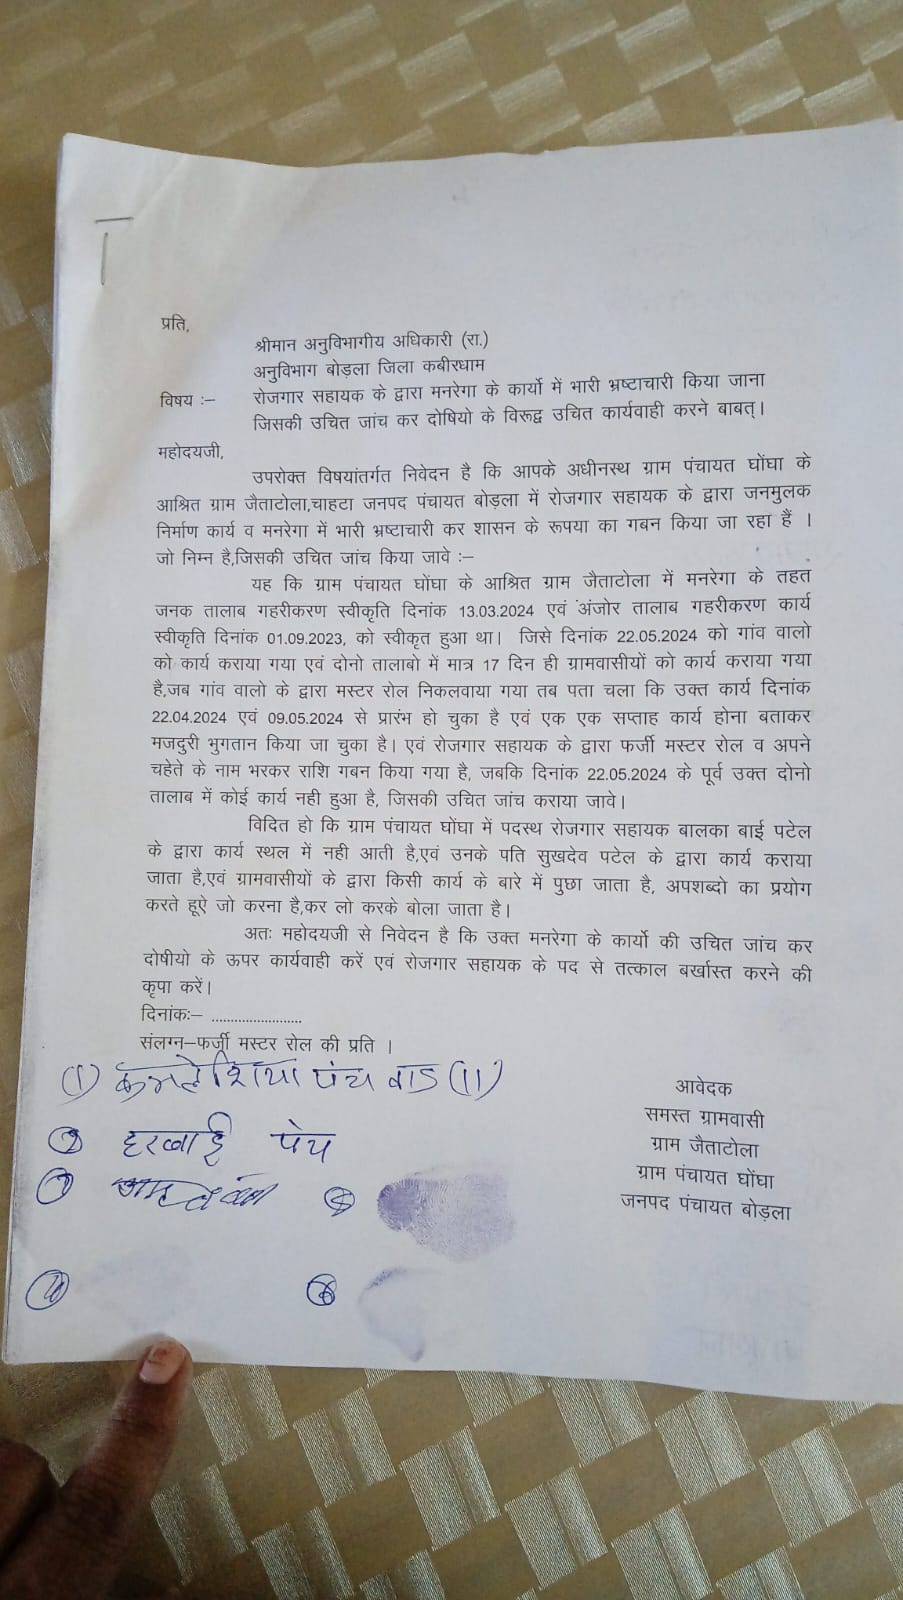 प्रति,
श्रीमान अनुविभागीय अधिकारी (रा.)
अनुविभाग बोड़ला जिला कबीरधाम
विषय :– रोजगार सहायक के द्वारा मनरेगा के कार्यो में भारी भ्रष्टाचारी किया जाना
जिसकी उचित जांच कर दोषियो के विरूद्व उचित कार्यवाही करने बाबत्।
महोदयजी,
उपरोक्त विषयांतर्गत निवेदन है कि आपके अधीनस्थ ग्राम पंचायत घोंघा के
आश्रित ग्राम जैताटोला,चाहटा जनपद पंचायत बोड़ला में रोजगार सहायक के द्वारा जनमुलक
निर्माण कार्य व मनरेगा में भारी भ्रष्टाचारी कर शासन के रूपया का गबन किया जा रहा हैं ।
जो निम्न है,जिसकी उचित जांच किया जावे :–
यह कि ग्राम पंचायत घोंघा के आश्रित ग्राम जैताटोला में मनरेगा के तहत
जनक तालाब गहरीकरण स्वीकृति दिनांक 13.03.2024 एवं अंजोर तालाब गहरीकरण कार्य
स्वीकृति दिनांक 01.09.2023, को स्वीकृत हुआ था। जिसे दिनांक 22.05.2024 को गांव वालो
को कार्य कराया गया एवं दोनो तालाबो में मात्र 17 दिन ही ग्रामवासीयों को कार्य कराया गया
है,जब गांव वालो के द्वारा मस्टर रोल निकलवाया गया तब पता चला कि उक्त कार्य दिनांक
22.04.2024 एवं 09.05.2024 से प्रारंभ हो चुका है एवं एक एक सप्ताह कार्य होना बताकर
मजदुरी भुगतान किया जा चुका है। एवं रोजगार सहायक के द्वारा फर्जी मस्टर रोल व अपने
चहेते के नाम भरकर राशि गबन किया गया है, जबकि दिनांक 22.05.2024 के पूर्व उक्त दोनो
तालाब में कोई कार्य नही हुआ है, जिसकी उचित जांच कराया जावे।
विदित हो कि ग्राम पंचायत घोंघा में पदस्थ रोजगार सहायक बालका बाई पटेल
के द्वारा कार्य स्थल में नही आती है,एवं उनके पति सुखदेव पटेल के द्वारा कार्य कराया
जाता है,एवं ग्रामवासीयों के द्वारा किसी कार्य के बारे में पुछा जाता है, अपशब्दो का प्रयोग
करते हूऐ जो करना है,कर लो करके बोला जाता है।
अतः महोदयजी से निवेदन है कि उक्त मनरेगा के कार्यो की उचित जांच कर
दोषीयो के ऊपर कार्यवाही करें एवं रोजगार सहायक के पद से तत्काल बर्खास्त करने की
कृपा करें।
दिनांकः– ........................
संलग्न–फर्जी मस्टर रोल की प्रति ।
(1) पंच वाड (11)
(2) हरबाई पंच
(3)
(5)
(4)
(6)
आवेदक
समस्त ग्रामवासी
ग्राम जैताटोला
ग्राम पंचायत घोंघा
जनपद पंचायत बोड़ला